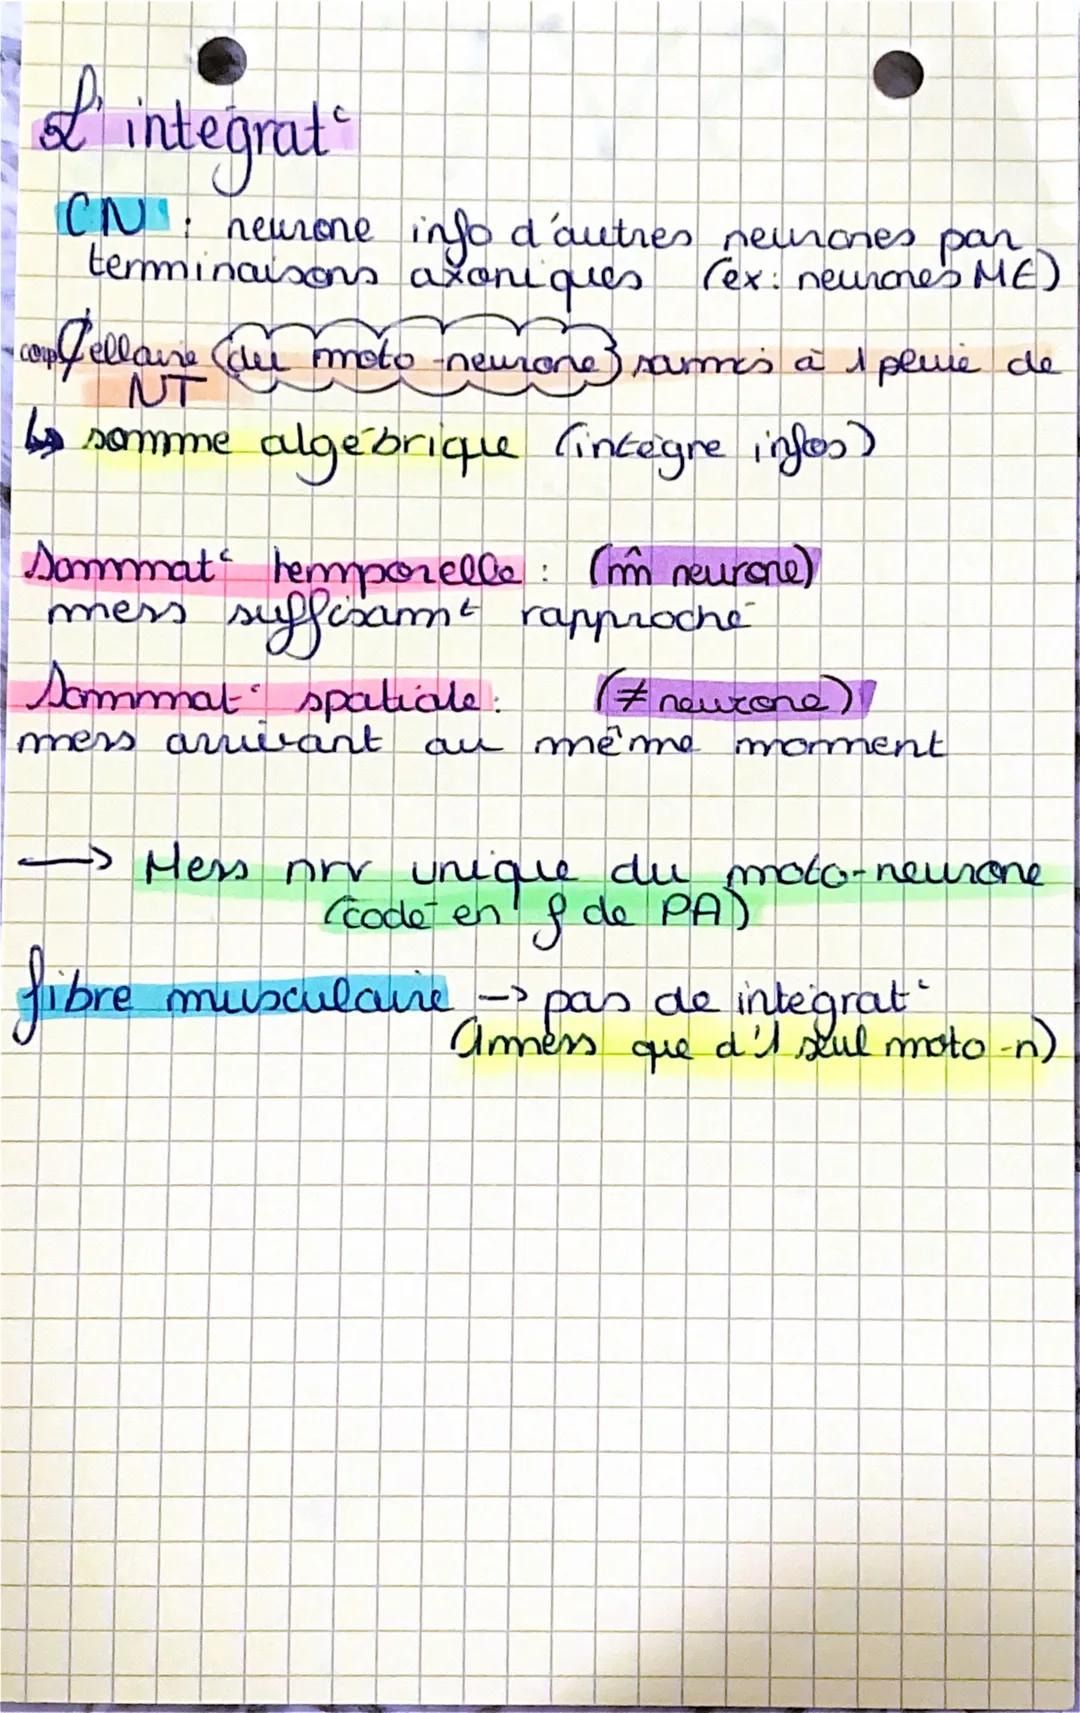 L'intégratᶜ
CN : neurone info d'autres neurones par
terminaisons axoniques (ex: neurones ME)
corps cellaire (du moto-neurone) soumis à 1 pluie de
NT
↳ somme algébrique (intègre infos)
Sommatᶜ temporelle : (m̂ neurone)
mess suffisamᵗ rapproché
Sommatᶜ spatiale : (≠ neurone)
mess arrivant au même moment
→ Mess nrv unique du moto-neurone
(codé en f de PA)
fibre musculaire → pas de intégratᶜ
(1 mess que d'1 seul moto-n)